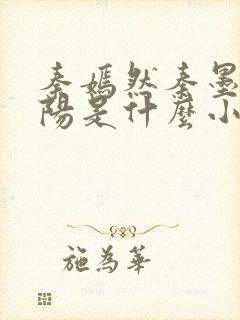 秦嫣然秦墨
陽是什麼小
施為華